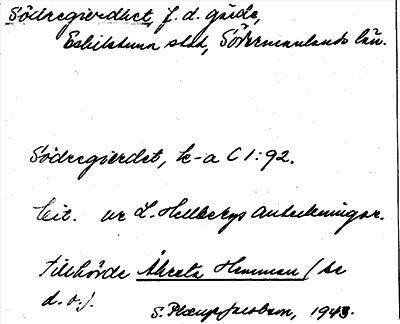 Södregierdhet, f. d. gärde,
Eskilstuna stad, Södermanlands län.
Södregierdet, k-a C 1:92.
Cit. ur L. Hellbergs anteckningar.
Tillhörde Åkesta Hemman / se
d. o. /.
S. Plænge Jacobson, 1943.